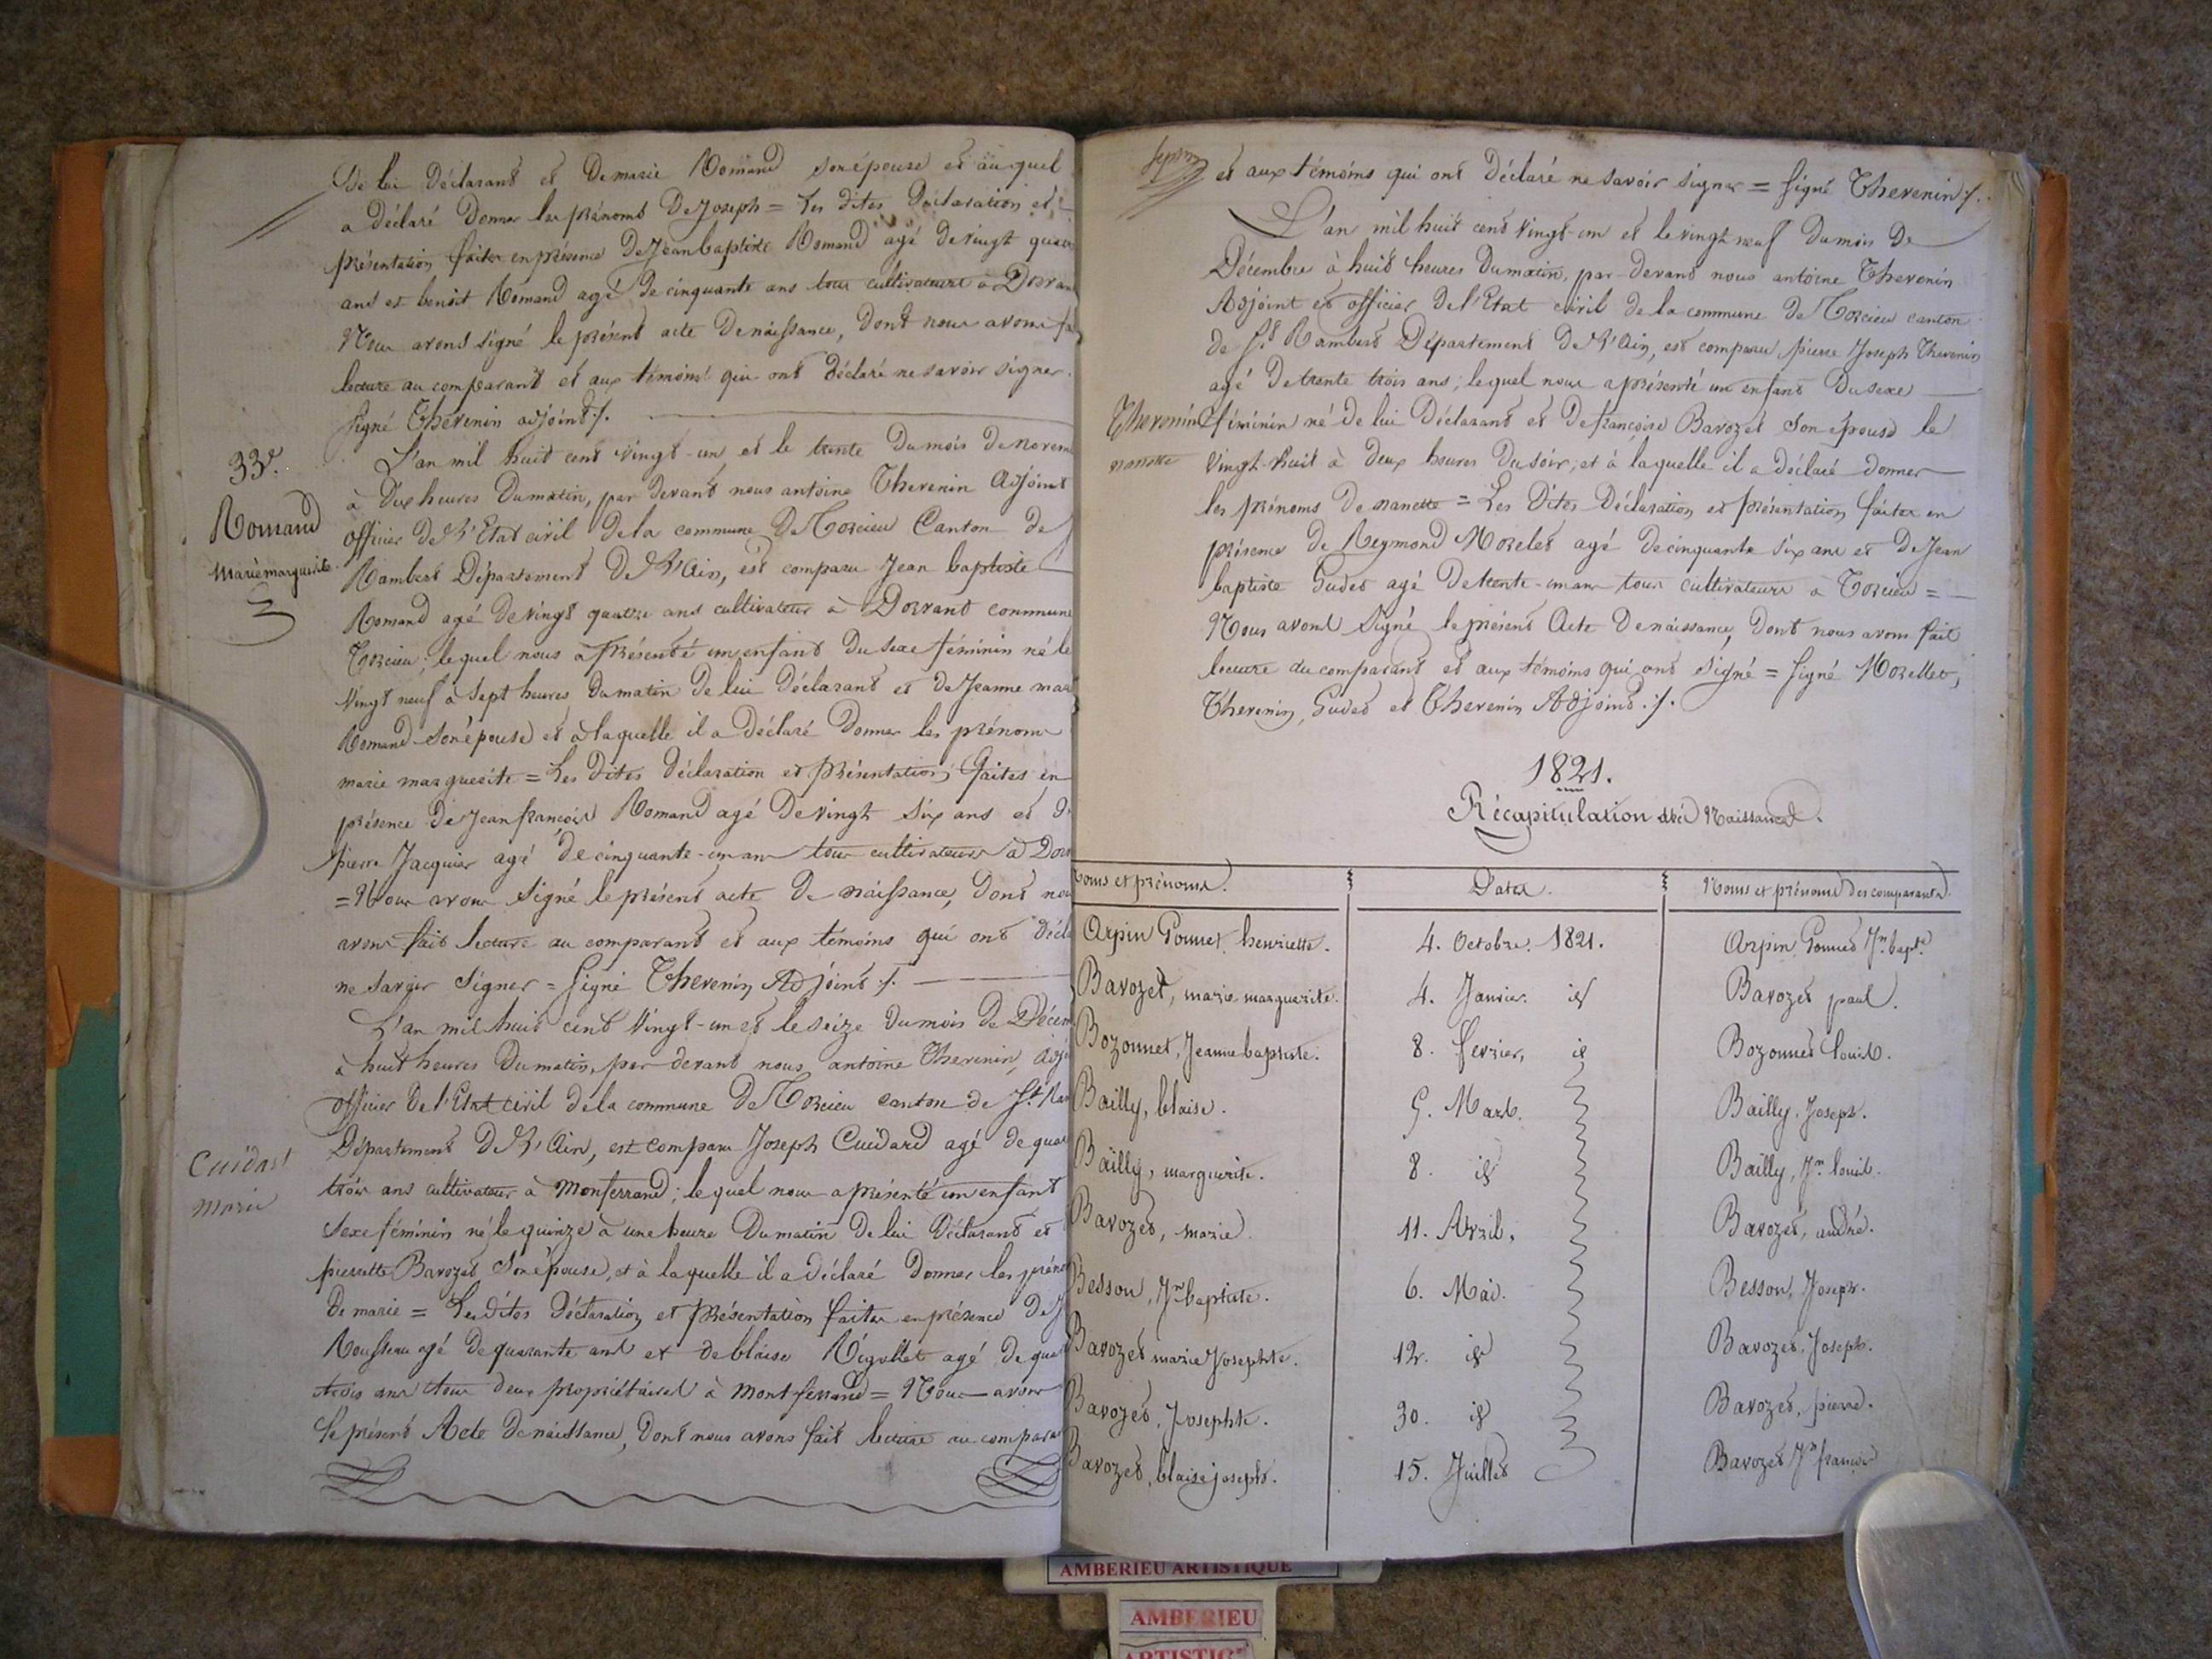 De lui Déclarant et De marie Romand son épouse et auquel
a déclaré Donner les prénoms De Joseph = Les dites Déclaration et
présentation faites en présence De Jean baptiste Romand agé de vingt quatre
ans et benoit Romand agé de cinquante ans tous cultivateurs a Dorvan
Nous avons signé le présent acte De naissance, Dont nous avons fa
lecture au comparant et aux témoins qui ont déclaré ne savoir signer.
signé Thevenin adjoint ./.
33e.
Romand
Marie marguerite
L'an mil huit cent vingt-un et le trente du mois de novem
à Dix heures Du matin, par devant nous antoine Thevenin Adjoint
officier De l'Etat civil De la commune De Torcieu Canton de
Rambert Département De l'Ain, est comparu Jean baptiste
Romand agé de vingt quatre ans cultivateur à Dorvant commune
Torcieu; lequel nous a présenté un enfant Du sexe féminin né le
vingt neuf à sept heures Du matin De lui Déclarant et De Jeanne mar
Romand son épouse et à laquelle il a déclaré Donner les prénoms
marie marguerite = Les dites déclaration et présentation faites en
présence De Jean françois Romand agé De vingt six ans et D
pierre Jacquier agé de cinquante-un ans tous cultivateurs à Dor
= Nous avons signé le présent acte De naissance, Dont no
avons fait lecture au comparant et aux témoins qui ont décla
ne savoir signer = signé Thevenin Adjoint ./.
L'an mil huit cent vingt-un et le seize du mois de Décem
à huit heures Du matin, par devant nous antoine Thevenin, adj
officier De l'Etat civil de la commune De Torcieu canton de St. Ram
Cuidard
Marie
Département De l'Ain, est comparu Joseph Cuidard agé de qua
trois ans cultivateur à Montferrand; lequel nous a présenté un enfant
sexe féminin né le quinze à une heure Du matin De lui Déclarant et
pierrette Bavozet son épouse, et à laquelle il a déclaré Donner les préno
De marie = Les dites Déclaration et présentation faites en présence De J
Rousseau agé de quarante ans et de blaise Régollet agé de qua
trois ans tous deux propriétaires à Montferrand = Nous avons
le présent Acte De naissance, Dont nous avons fait lecture au compara
et aux témoins qui ont Déclaré ne savoir signer = signé Thevenin ./.
L'an mil huit cent vingt-un et le vingt neuf Du mois De
Décembre à huit heures Du matin, par-devant nous antoine Thevenin
Adjoint et officier De l'Etat civil de la commune De Torcieu canton
de St. Rambert Département De l'Ain, est comparu pierre Joseph Thevenin
agé De trente trois ans; lequel nous a présenté un enfant Du sexe
Thevenin
nanette
féminin né de lui Déclarant et De françoise Bavozet son épouse le
vingt-huit à deux heures Du soir; et à laquelle il a déclaré donner
les prénoms De nanette = Les Dites Déclaration et présentation faites en
présence de Reymond Morelet agé de cinquante six ans et De Jean
baptiste Gudet agé De trente-un ans tous cultivateurs à Torcieu =
Nous avons signé le présent Acte De naissance, Dont nous avons fait
lecture au comparant et aux témoins qui ont signé = signé Morellet,
Thevenin, Gudet et Thevenin Adjoint ./.
1821.
Récapitulation des Naissances.
Noms et prénoms. Dates. Noms et prénoms des comparants
Arpin Gonnet, henriette. 4. Octobre. 1821. Arpin Gonnet Jn. bapte.
Bavozet, marie marguerite. 4. Janvier. id Bavozet paul.
Bozonnet, Jeanne baptiste. 8. fevrier, id Bozonnet louis.
Bailly, blaise. 5. Mars. Bailly, Joseph.
Bailly, marguerite. 8. id Bailly, Jn. louis.
Bavozet, marie. 11. Avril. Bavozet, andré.
Besson, Jn. baptiste. 6. Mai. Besson, Joseph.
Bavozet marie Josephte. 12. id Bavozet, Joseph.
Bavozet, Josephte. 30. id Bavozet, pierre.
Bavozet, blaise joseph. 15. Juillet Bavozet Jn. françois
AMBERIEU ARTISTIQUE
AMBERIEU